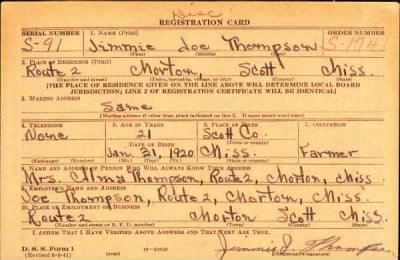 Disc
REGISTRATION CARD
SERIAL NUMBER 1. NAME (Print) ORDER NUMBER
S-91 Jimmie Joe Thompson S-174
2. PLACE OF RESIDENCE (Print)
Route 2 Morton, Scott Miss.
(Number and street) (Town, township, village, or city) (County) (State)
[THE PLACE OF RESIDENCE GIVEN ON THE LINE ABOVE WILL DETERMINE LOCAL BOARD
JURISDICTION; LINE 2 OF REGISTRATION CERTIFICATE WILL BE IDENTICAL]
3. MAILING ADDRESS
Same
[Mailing address if other than place indicated on line 2. If same insert word same]
4. TELEPHONE 5. AGE IN YEARS 6. PLACE OF BIRTH 7. OCCUPATION
None 21 Scott Co.
DATE OF BIRTH (Town or county)
Jan. 21, 1920 Miss. Farmer
(Exchange) (Number) (Mo.) (Day) (Yr.) (State or country)
8. NAME AND ADDRESS OF PERSON WHO WILL ALWAYS KNOW YOUR ADDRESS
Mrs. Thompson, Route 2, Morton, Miss.
9. EMPLOYER'S NAME AND ADDRESS
Joe Thompson, Route 2, Morton, Miss.
10. PLACE OF EMPLOYMENT OR BUSINESS
Route 2 Morton Scott Miss.
(Number and street or R. F. D. number) (Town) (County) (State)
I AFFIRM THAT I HAVE VERIFIED ABOVE ANSWERS AND THAT THEY ARE TRUE.
D. S. S. Form 1 Jimmie J. Thompson
(over)